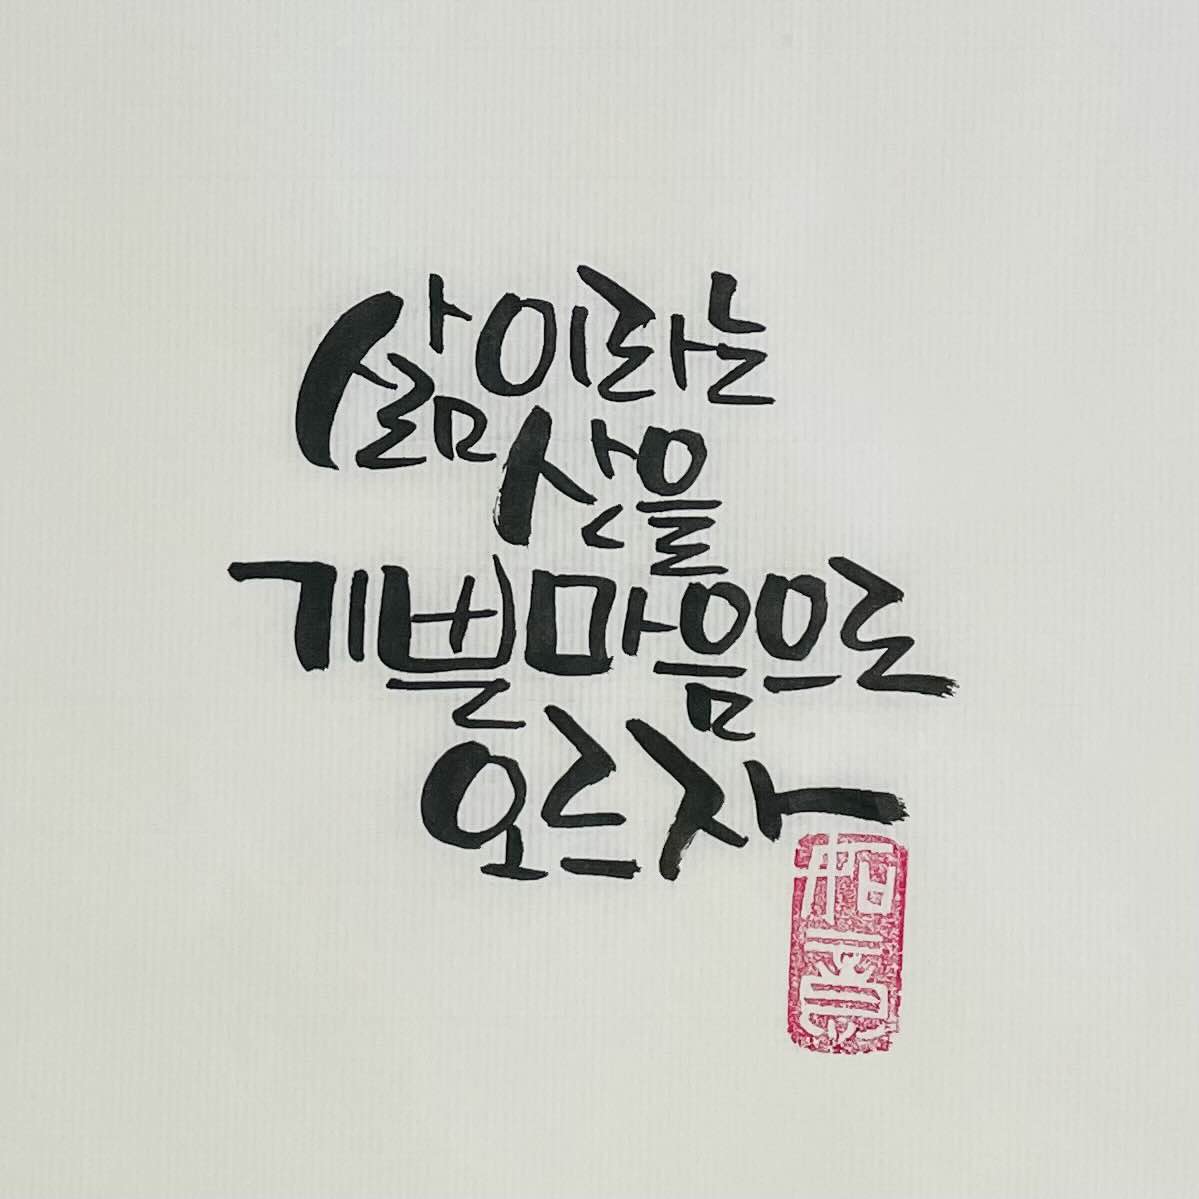 삶이라는
산을
기쁜마음으로
오르자